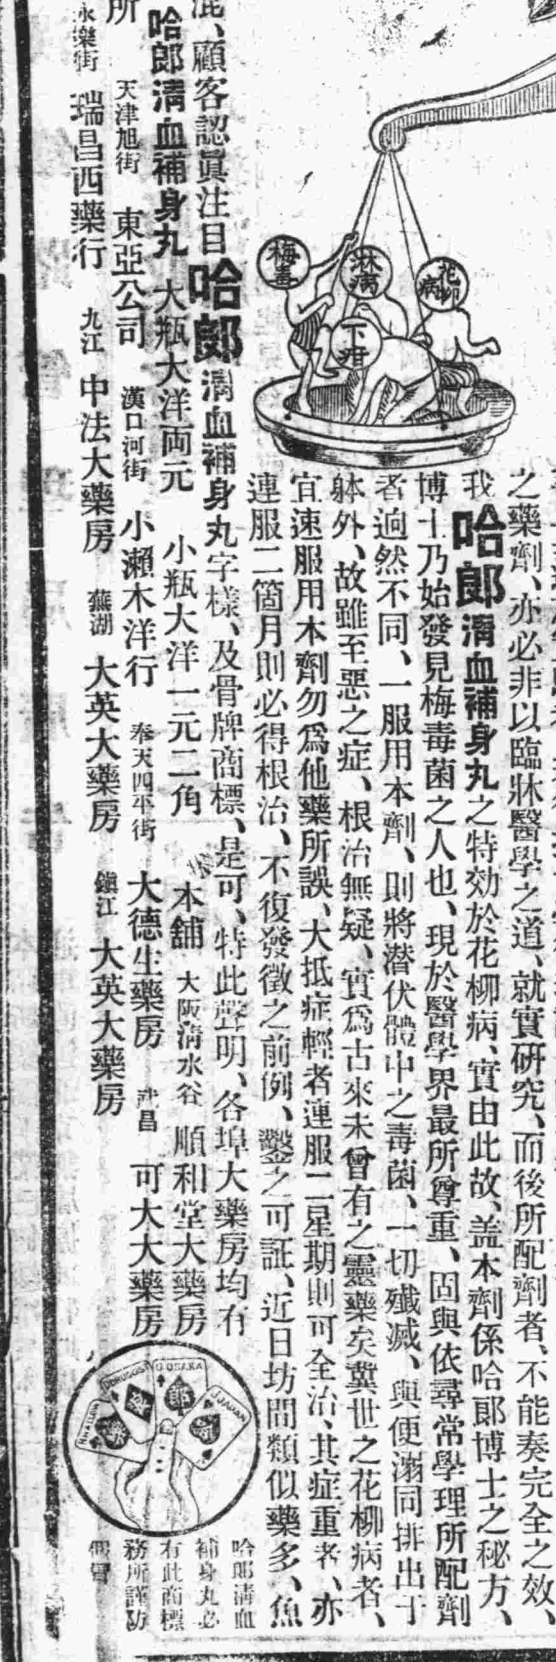 梅毒
淋病
花柳病
下疳
之藥劑、亦必非以臨牀醫學之道、就實研究、而後所配劑者、不能奏完全之效、
我哈郎清血補身丸之特効於花柳病、實由此故、盖本劑係哈郎博士之秘方、
博士乃始發見梅毒菌之人也、現於醫學界最所尊重、固與依尋常學理所配劑
者逈然不同、一服用本劑、則將潛伏體中之毒菌、一切殲滅、與便溺同排出于
躰外、故雖至惡之症、根治無疑、實爲古來未曾有之靈藥矣冀世之花柳病者、
宜速服用本劑勿爲他藥所誤、大抵症輕者連服二星期則可全治、其症重者、亦
連服二箇月則必得根治、不復發徵之前例、鑿之可証、近日坊間類似藥多、魚
混、顧客認眞注目哈郎清血補身丸字樣、及骨牌商標、是可、特此聲明、各埠大藥房均有
哈郎清血補身丸 大瓶大洋両元 小瓶大洋一元二角 本舖 大阪清水谷 順和堂大藥房
所 天津旭街 東亞公司 漢口河街 小瀬木洋行 奉天四平街 大德生藥房 武昌 可大大藥房
永樂街 瑞昌西藥行 九江 中法大藥房 蕪湖 大英大藥房 鎭江 大英大藥房
G OSAKA
J JAPAN
郎
哈郎清血
補身丸必
有此商標
務所謹防